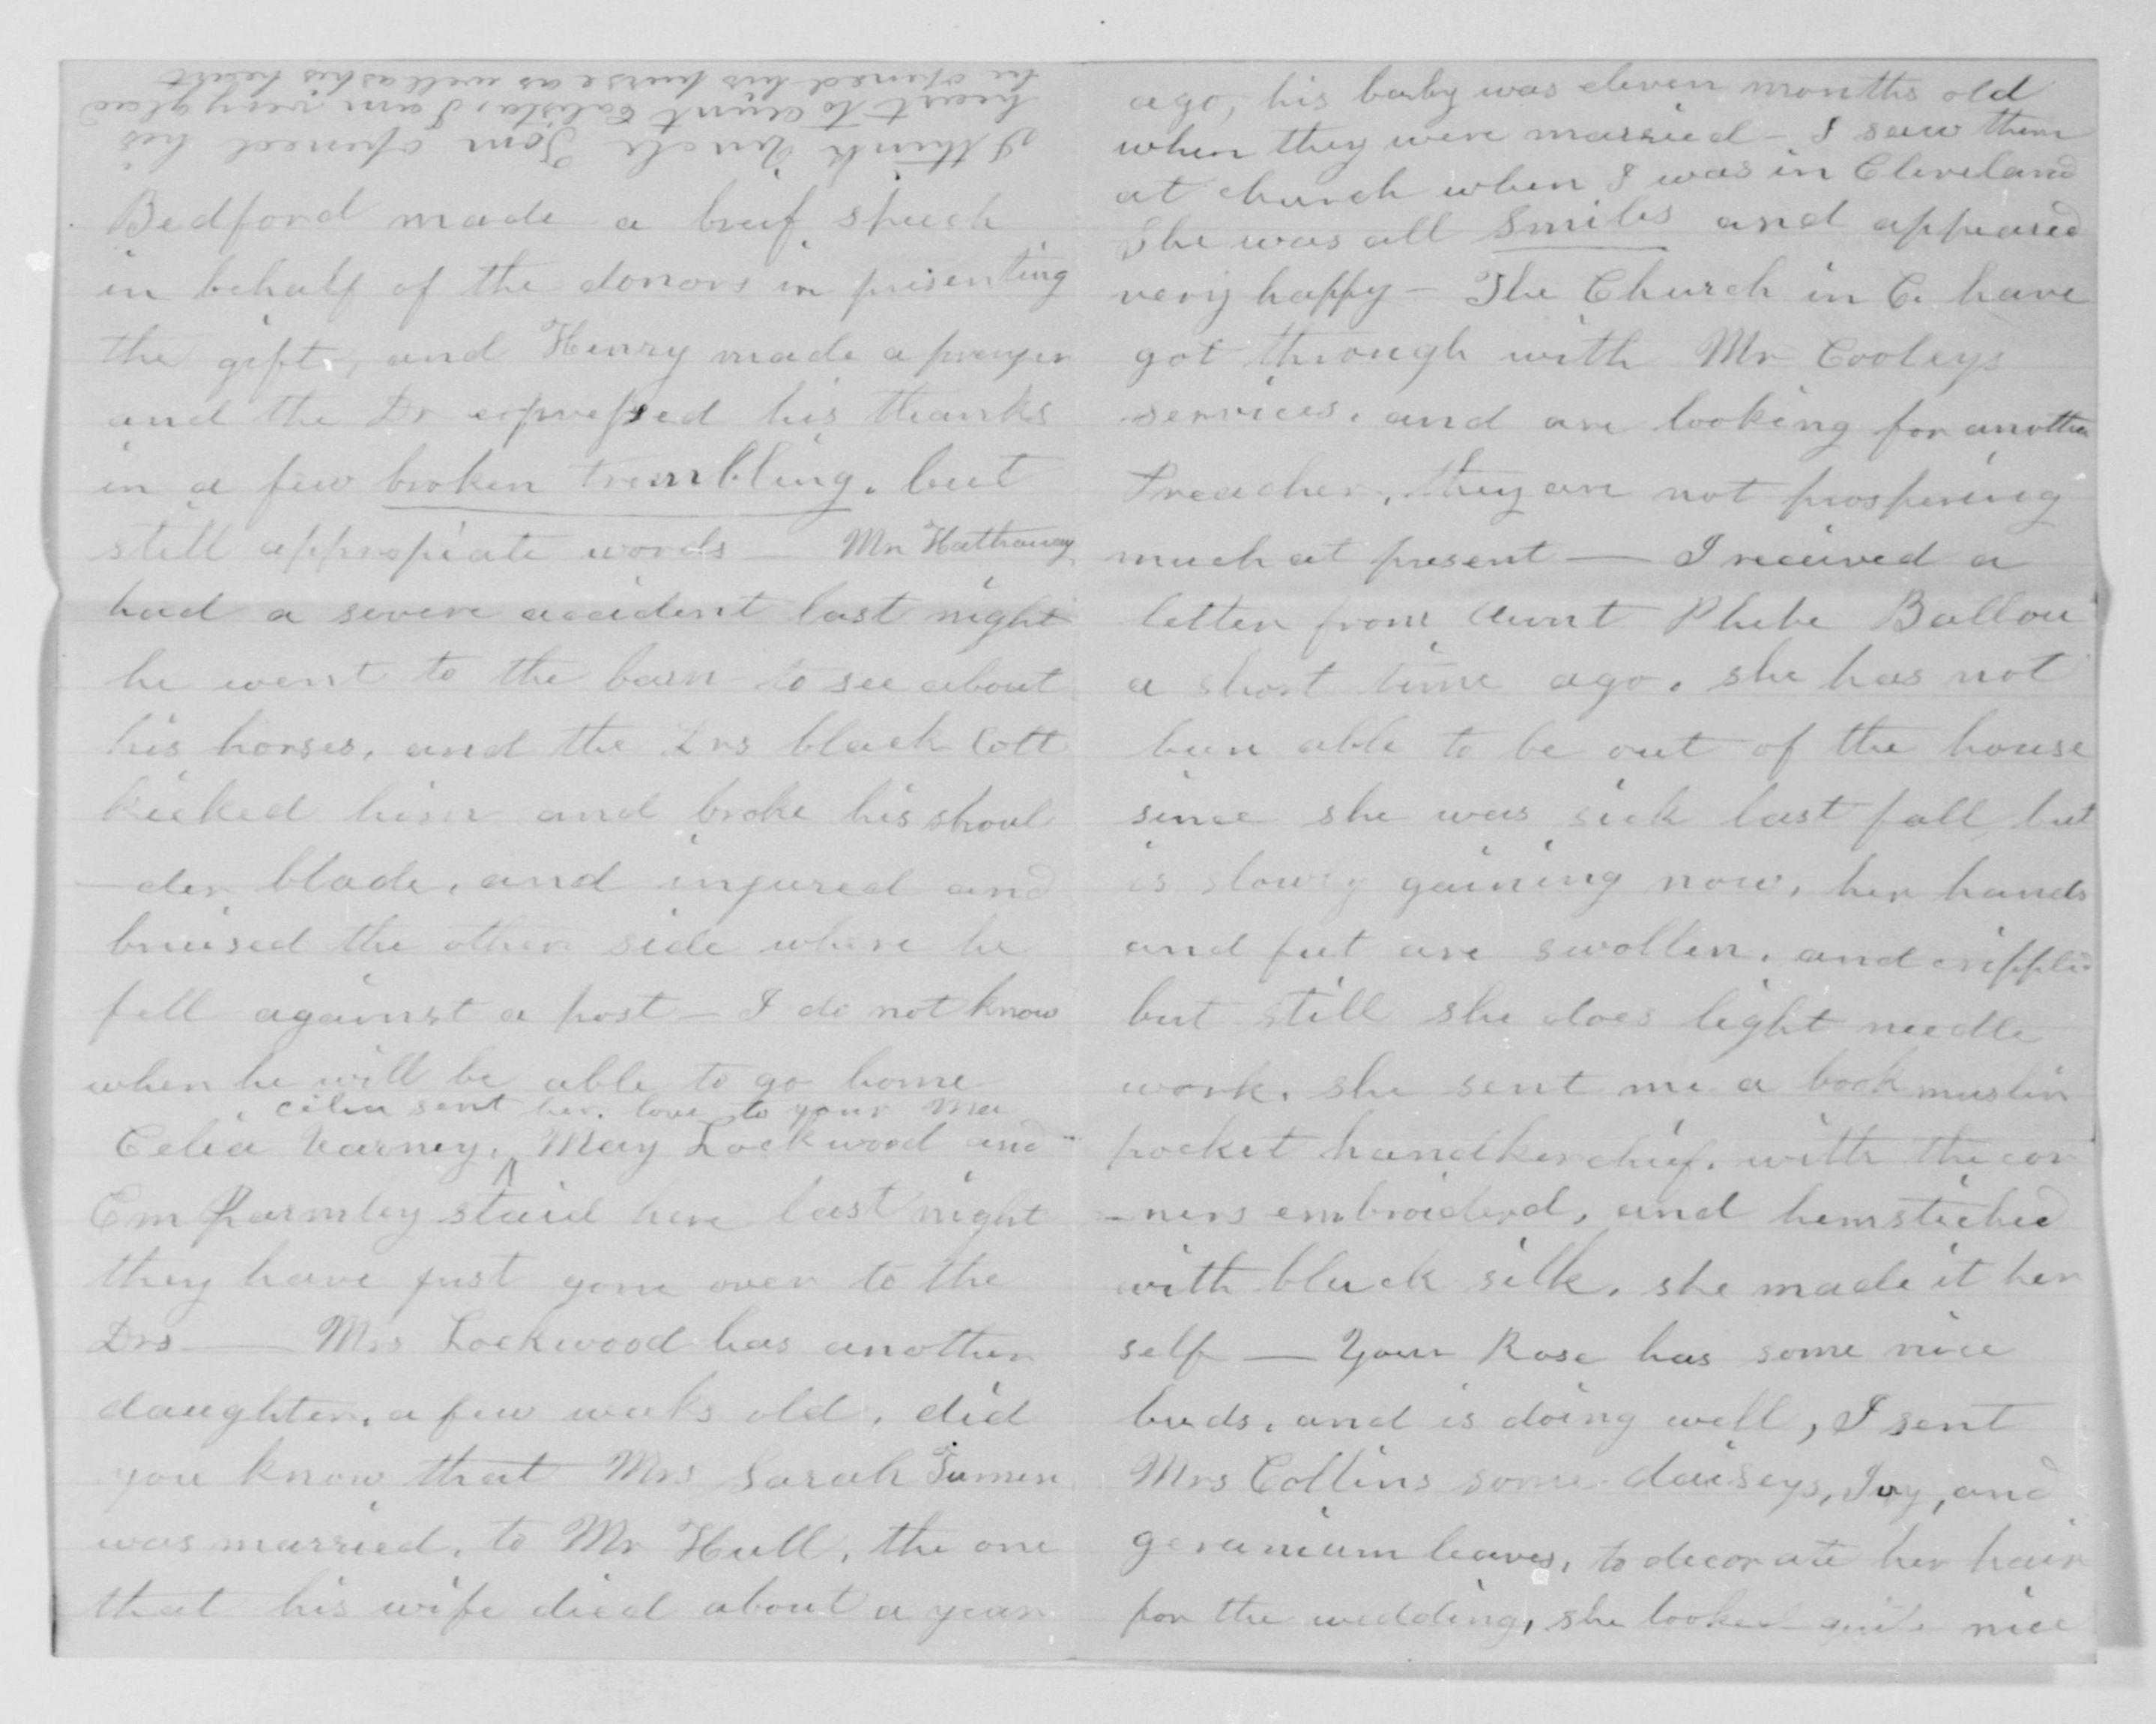 I think Uncle Tom opened his
heart to Aunt Calista, I am very glad
he opened his purse as well as his heart
Bedford made a breif speech
in behalf of the donors in presenting
the gift, and Henry made a prayer
and the Dr expressed his thanks
in a few broken trembling. but
still appropiate words — Mr Hathaway
had a severe accident last night
he went to the barn to see about
his horses, and the Drs black Colt
kicked him and broke his shoul
-der blade, and injured and
bruised the other side where he
fell against a post — I do not know
when he will be able to go home
celia sent her love to your Ma
Celia Varney, ^ May Lockwood and
Em Parmley staid here last night
they have just gone over to the
Drs — Mrs Lockwood has another
daughter, a few weeks old, did
you know that Mrs Sarah
was married, to Mr Hull, the one
that his wife died about a year
ago, his baby was eleven months old
when they were married — I saw them
at church when I was in Cleveland
She was all Smiles and appeared
very happy — The Church in C. have
got through with Mr Cooleys
services, and are looking for another
Preacher, they are not prospering
much at present — I received a
letter from Aunt Phebe Ballou
a short time ago. she has not
been able to be out of the house
since she was sick last fall, but
is slowly gaining now, her hands
and feet are swollen, and crippled
but still she does light needle
work. she sent me a book muslin
pocket handkerchief, with the cor
-ners embroiderd, and hemstiched
with black silk, she made it her
self — Your Rose has some nice
buds, and is doing well, I sent
Mrs Collins some daiseys, Ivy, and
geranium leaves, to decorate her hair
for the wedding, she looked quite nice